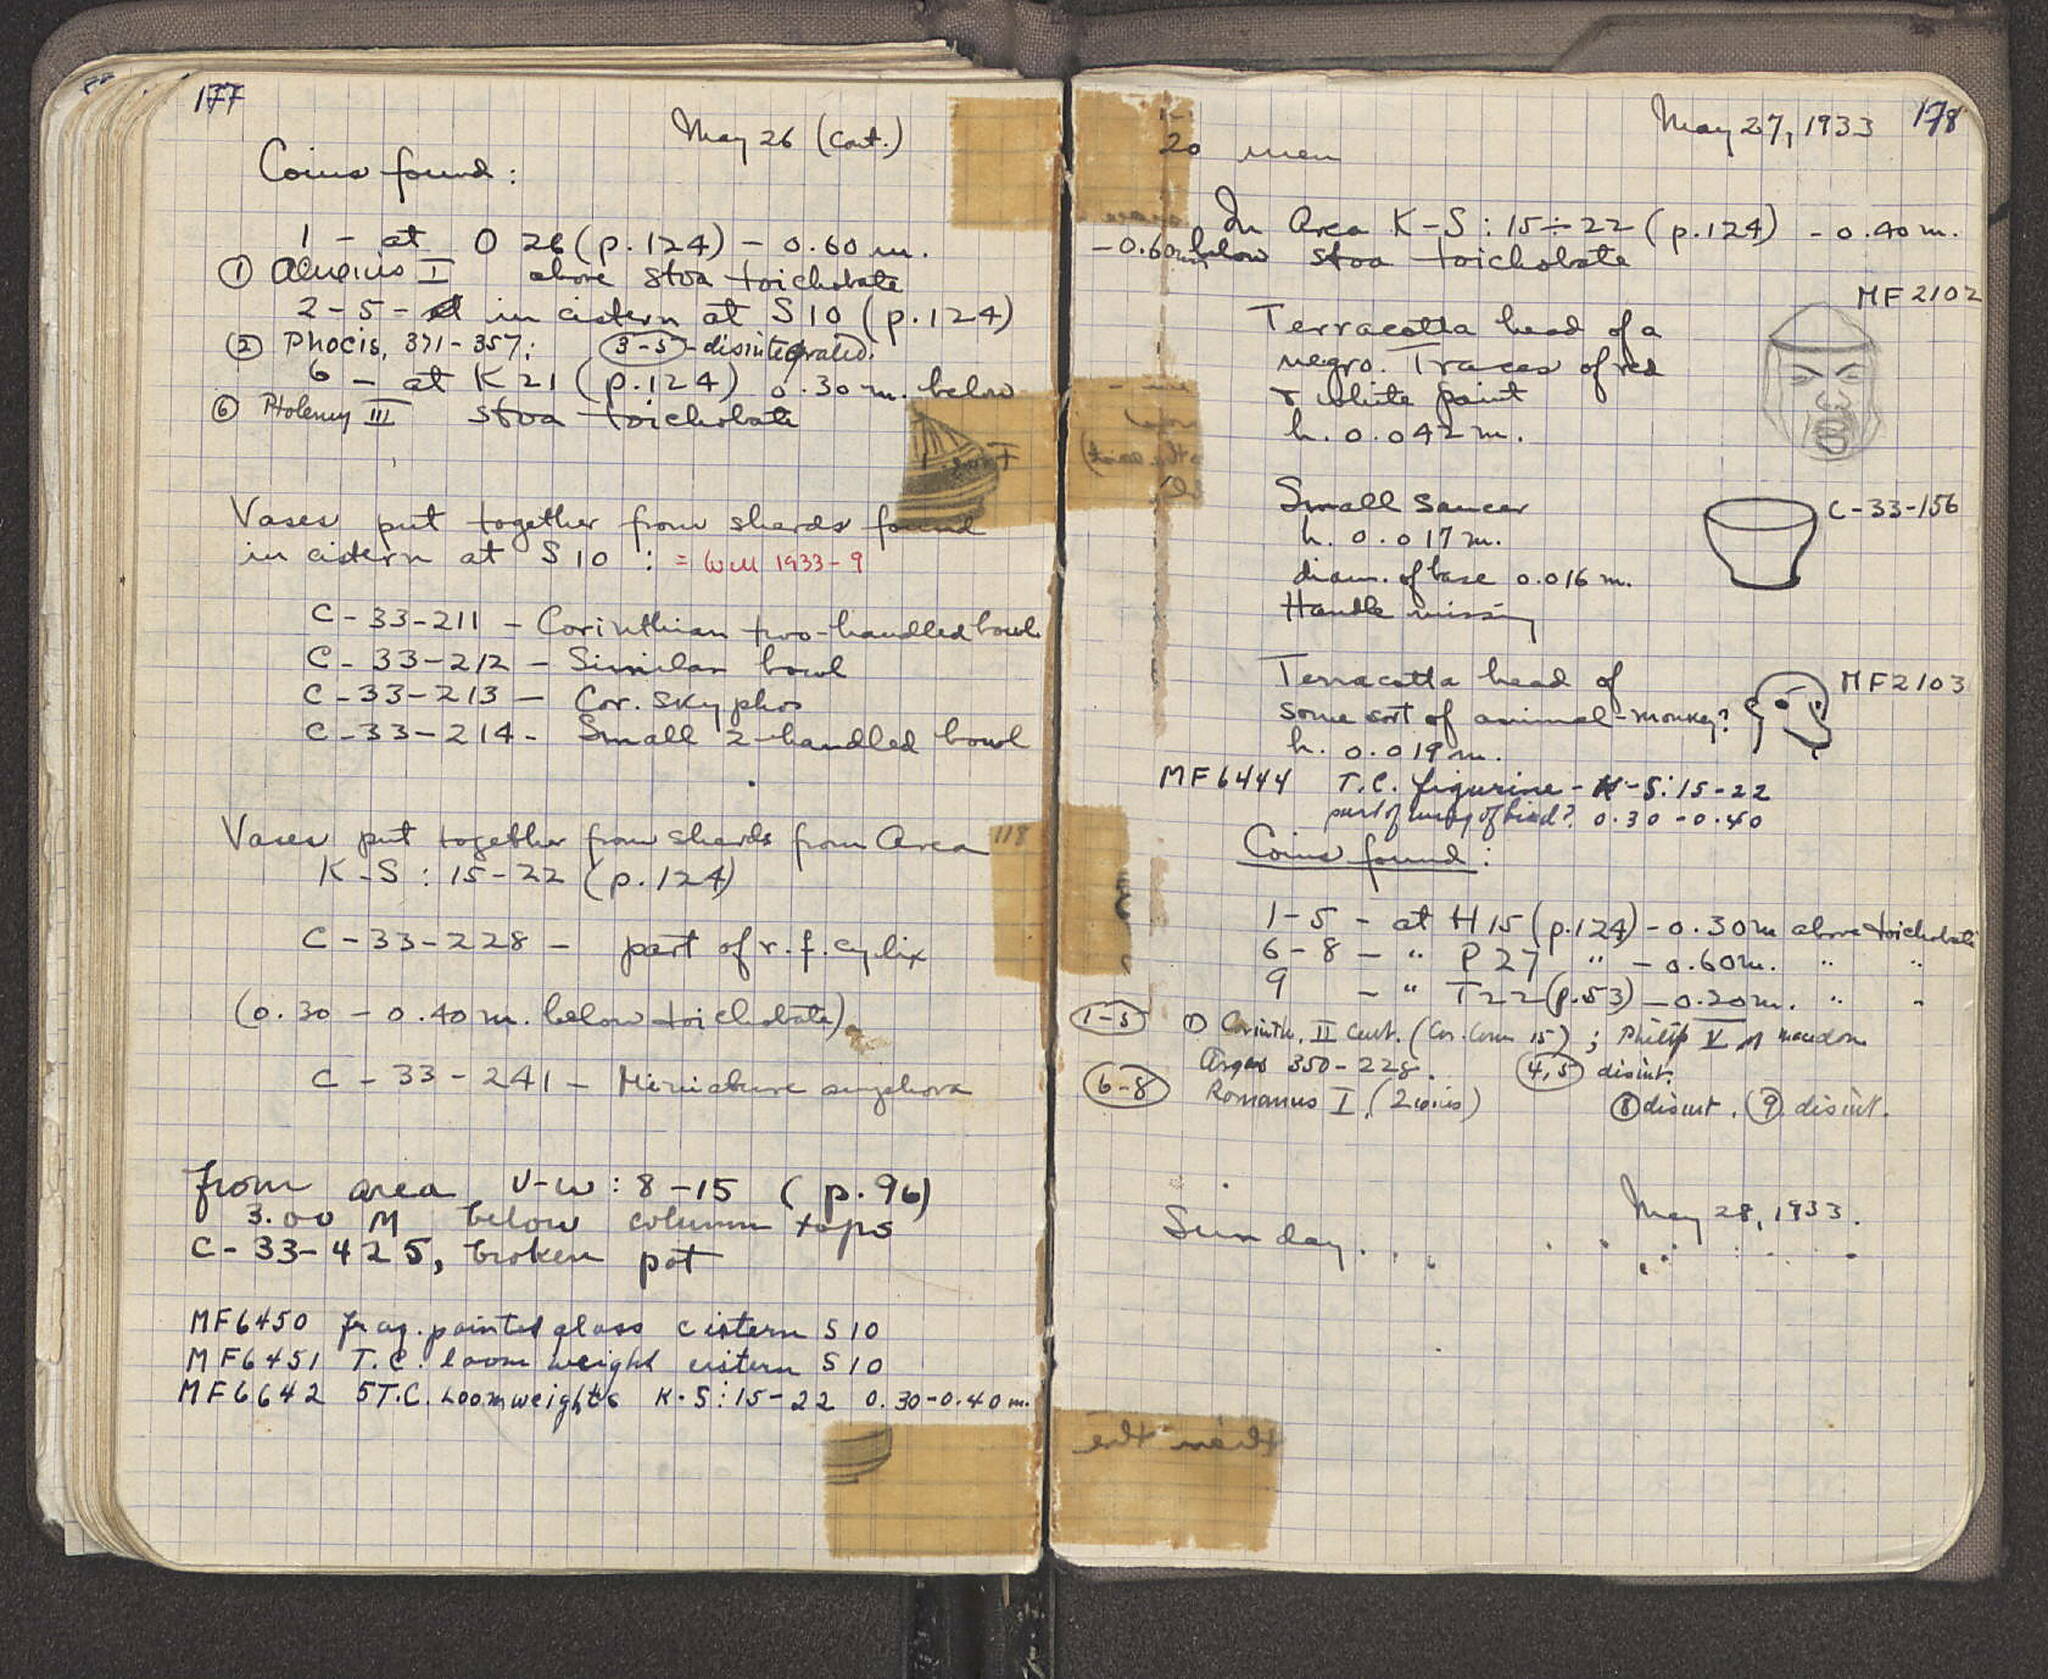 177
May 26 (Cont.)
Coins found:
1 - at O 26 (p.124) - 0.60 m.
① Alexius I above stoa toichobate
2-5 - in cistern at S10 (p.124)
② Phocis, 371-357; 3-5 - disintegrated.
6 - at K21 (p.124) 0.30 m. below
⑥ Ptolemy III stoa toichobate
Vases put together from sherds found
in cistern at S10 : = Well 1933-9
C-33-211 - Corinthian two-handled bowl
C-33-212 - Similar bowl
C-33-213 - Cor. skyphos
C-33-214 - Small 2-handled bowl
Vases put together from sherds from Area
K-S : 15-22 (p.124)
118
C-33-228 - part of r.f. cylix
(0.30 - 0.40 m. below toichobate)
C-33-241 - Miniature amphora
from area V-W : 8-15 (p.96)
3.00 M below column tops
C-33-425, broken pot
MF6450 frag. painted glass cistern S10
MF6451 T.C. loom weight cistern S10
MF6642 5 T.C. Loomweights K-S:15-22 0.30-0.40 m.
May 27, 1933 178
20 men
In Area K-S : 15-22 (p.124) - 0.40 m.
- 0.60 m below stoa toichobate
MF 2102
Terracotta head of a
negro. Traces of red
& white paint
h. 0.042 m.
Small saucer C-33-156
h. 0.017 m.
diam. of base 0.016 m.
Handle missing
Terracotta head of MF2103
some sort of animal - monkey?
h. 0.019 m.
MF6444 T.C. figurine - K-S:15-22
part of wing of bird? 0.30 - 0.40
Coins found :
1-5 - at H15 (p.124) - 0.30 m above toichobate
6-8 - " P27 " - 0.60 m. " "
9 - " T22 (p.53) - 0.20 m. " "
1-5 ① Corinth, II cent. (Cor. Coins 15) ; Philip V of Macedon
Argos 350-228. 4,5 disint.
6-8 Romanus I, (2 coins) ⑧ disint. ⑨ disint.
May 28, 1933.
Sunday . . .